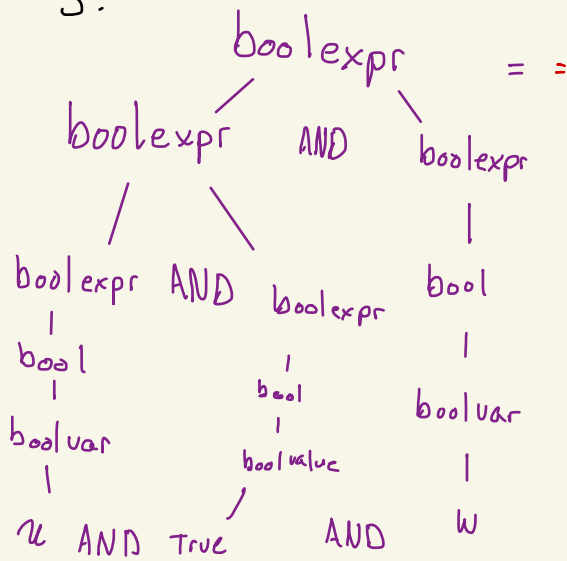 3.
boolexpr = =
boolexpr AND boolexpr
boolexpr AND boolexpr bool
bool bool boolvar
boolvar boolvalue
u AND True AND w